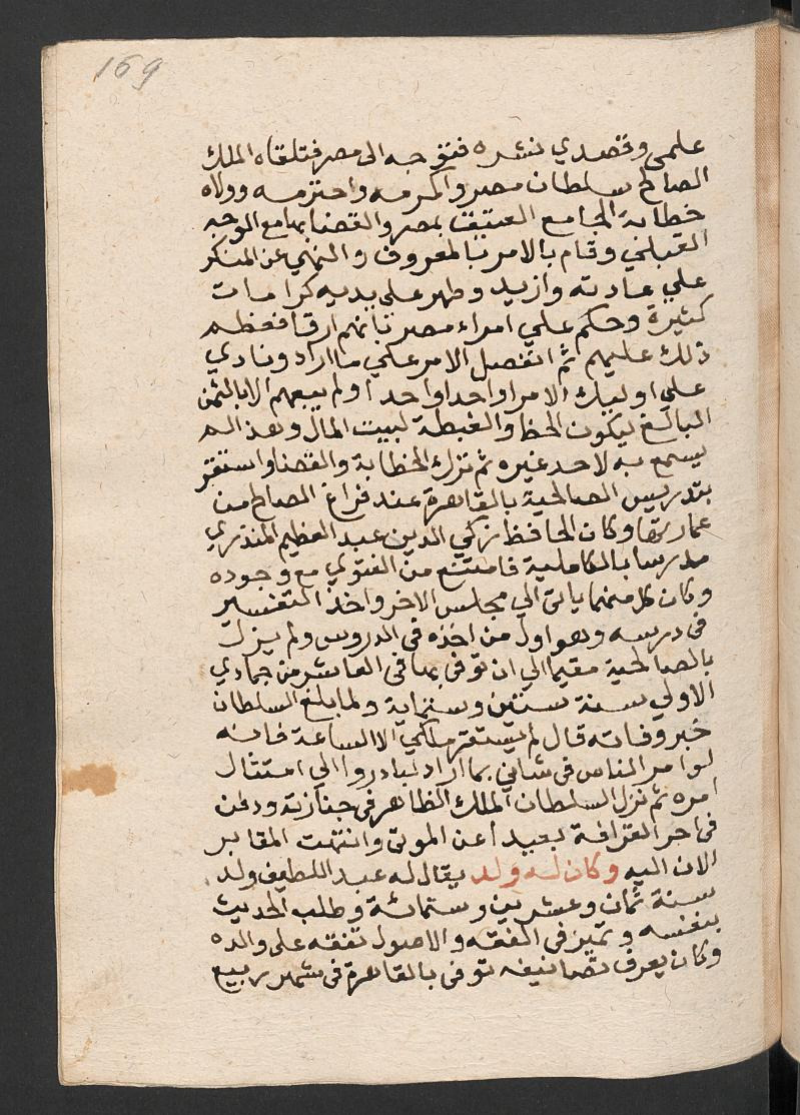 169
علمي وقصدي نشره فتوجه الى مصر فتلقاه الملك
الصالح سلطان مصر واكرمه واحترمه وولاه
خطابة الجامع العتيق بمصر والقضا بها مع الوجه
القبلي وقام بالامر بالمعروف والنهي عن المنكر
علي عادته وازيد وظهر علي يديه كرامات
كثيرة وحكم علي امراء مصر بانهم ارقا فعظم
ذلك عليهم ثم انفصل الامر علي ما اراد ونادي
علي اوليك الامرا واحدا واحدا ولم يبعهم الا بالثمن
البالغ ليكون الحظ والغبطة لبيت المال وهذا لم
يسمع به لاحد غيره ثم ترك الخطابة والقضا واستقر
بتدريس الصالحية بالقاهرة عند فراغ الصالح من
عمارتها وكان الحافظ زكي الدين عبد العظيم المنذري
مدرسا بالكاملية فامتنع من الفتوي مع وجوده
وكان كل منهما ياتي الي مجلس الاخر واخذ التفسير
في درسه وهو اول من اخذه في الدروس ولم يزل
بالصالحية مقيما الي ان توفي بها في العاشر من جمادي
الاولي سنة ستين وستماية ولما بلغ السلطان
خبر وفاته قال لم يستقر ملكي الا الساعة فانه
لو امر الناس في شاني بما اراد لبادروا الي امتثال
امره ثم نزل السلطان الملك الظاهر في جنازته ودفن
في اخر القرافة بعيدا عن الموتى وانتهت المقابر
الان اليه وكان له ولد يقال له عبد اللطيف ولد
سنة ثمان وعشرين وستمائة وطلب الحديث
بنفسه وتميز في الفقه والاصول تفقه على والده
وكان يعرف تصانيفه توفي بالقاهرة في شهر ربيع